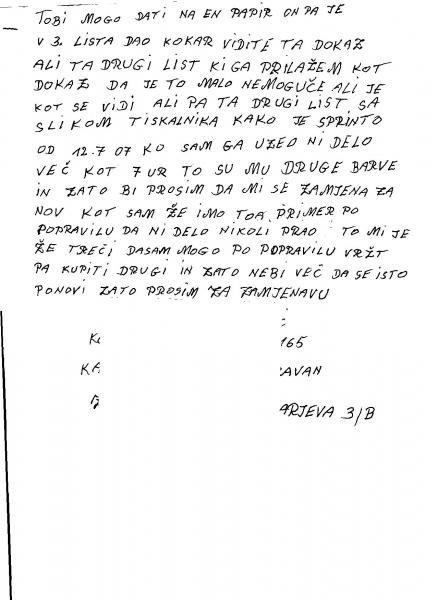 TOBI MOGO DATI NA EN PAPIR ON PA JE
V 3. LISTA DAO KOKAR VIDITE TA DOKAZ
ALI TA DRUGI LIST KI GA PRILAŽEM KOT
DOKAZ DA JE TO MALO NEMOGUČE ALI JE
KOT SE VIDI ALI PA TA DRUGI LIST SA
SLIKOM TISKALNIKA KAKO JE SPRINTO
OD 12.7 07 KO SAM GA UZEO NI DELO
VEČ KOT 7 UR TO SU MU DRUGE BARVE
IN ZATO BI PROSIM DA MI SE ZAMJENA ZA
NOV KOT SAM ŽE IMO TOA PRIMER PO
POPRAVILU DA NI DELO NIKOLI PRAO TO MI JE
ŽE TREČI DASAM MOGO PO POPRAVILU VRŽT
PA KUPITI DRUGI IN ZATO NEBI VEČ DA SE ISTO
PONOVI ZATO PROSIM ZA ZAMJENAVU
K 165
KA AVAN
ARJEVA 3/B